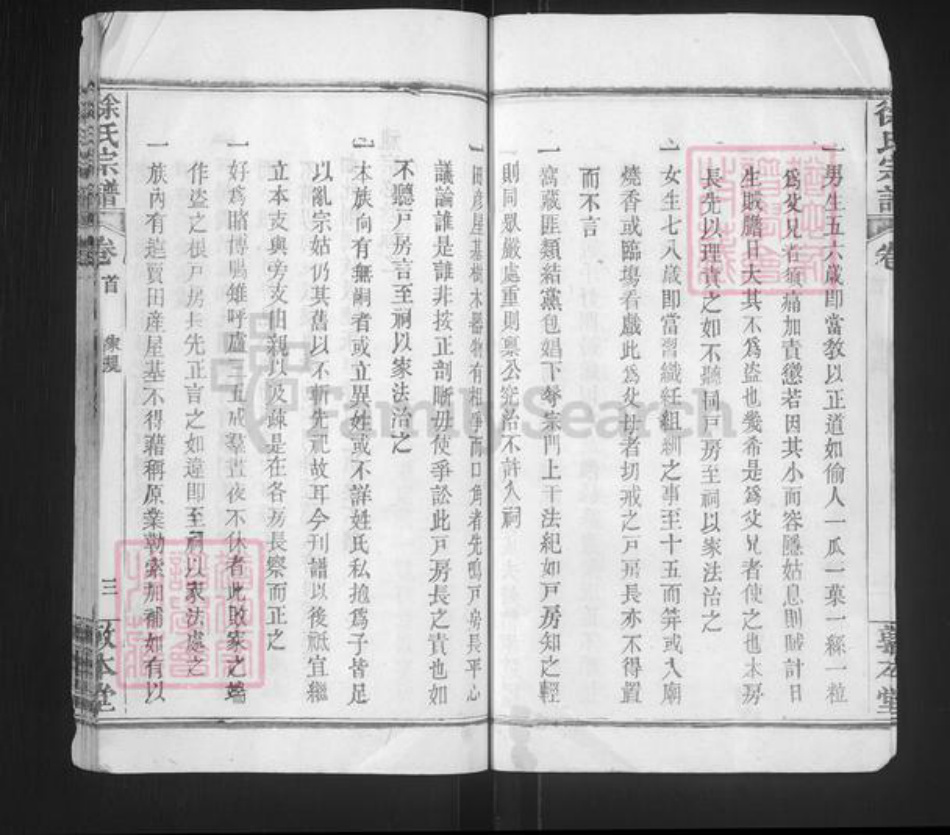 徐氏宗譜 卷
一男生五六歲即當教以正道如偷人一瓜一菓一絲一粒
爲父兄者須痛加責懲若因其小而容隱姑息則賊計日
生賊膽日大其不爲盜也幾希是爲父兄者使之也本房
長先以理責之如不聽同戶房至祠以家法治之
一女生七八歲即當習織紝組紃之事至十五而笄或入廟
燒香或臨塲看戲此爲父母者切戒之戶房長亦不得置
而不言
一窩藏匪類結黨包娼下辱宗門上干法紀如戶房知之輕
則同眾嚴處重則稟公究治不許入祠
一田產屋基樹木器物有相爭而口角者先鳴戶房長平心
議論誰是誰非按正剖斷毋使爭訟此戶房長之責也如
不聽戶房言至祠以家法治之
一本族向有無嗣者或立異姓或不詳姓氏私撫爲子皆足
以亂宗姑仍其舊以不斬先祀故耳今刊譜以後祗宜繼
立本支與旁支由親以及疎是在各房長察而正之
一好爲賭博喝雉呼盧三五成羣晝夜不休者此敗家之端
作盜之根戶房長先正言之如違即至祠以家法處之
一族內有造賣田産屋基不得藉稱原業勒索加補如有以
徐氏宗譜 卷首 家規 三 敦本堂
FamilySearch